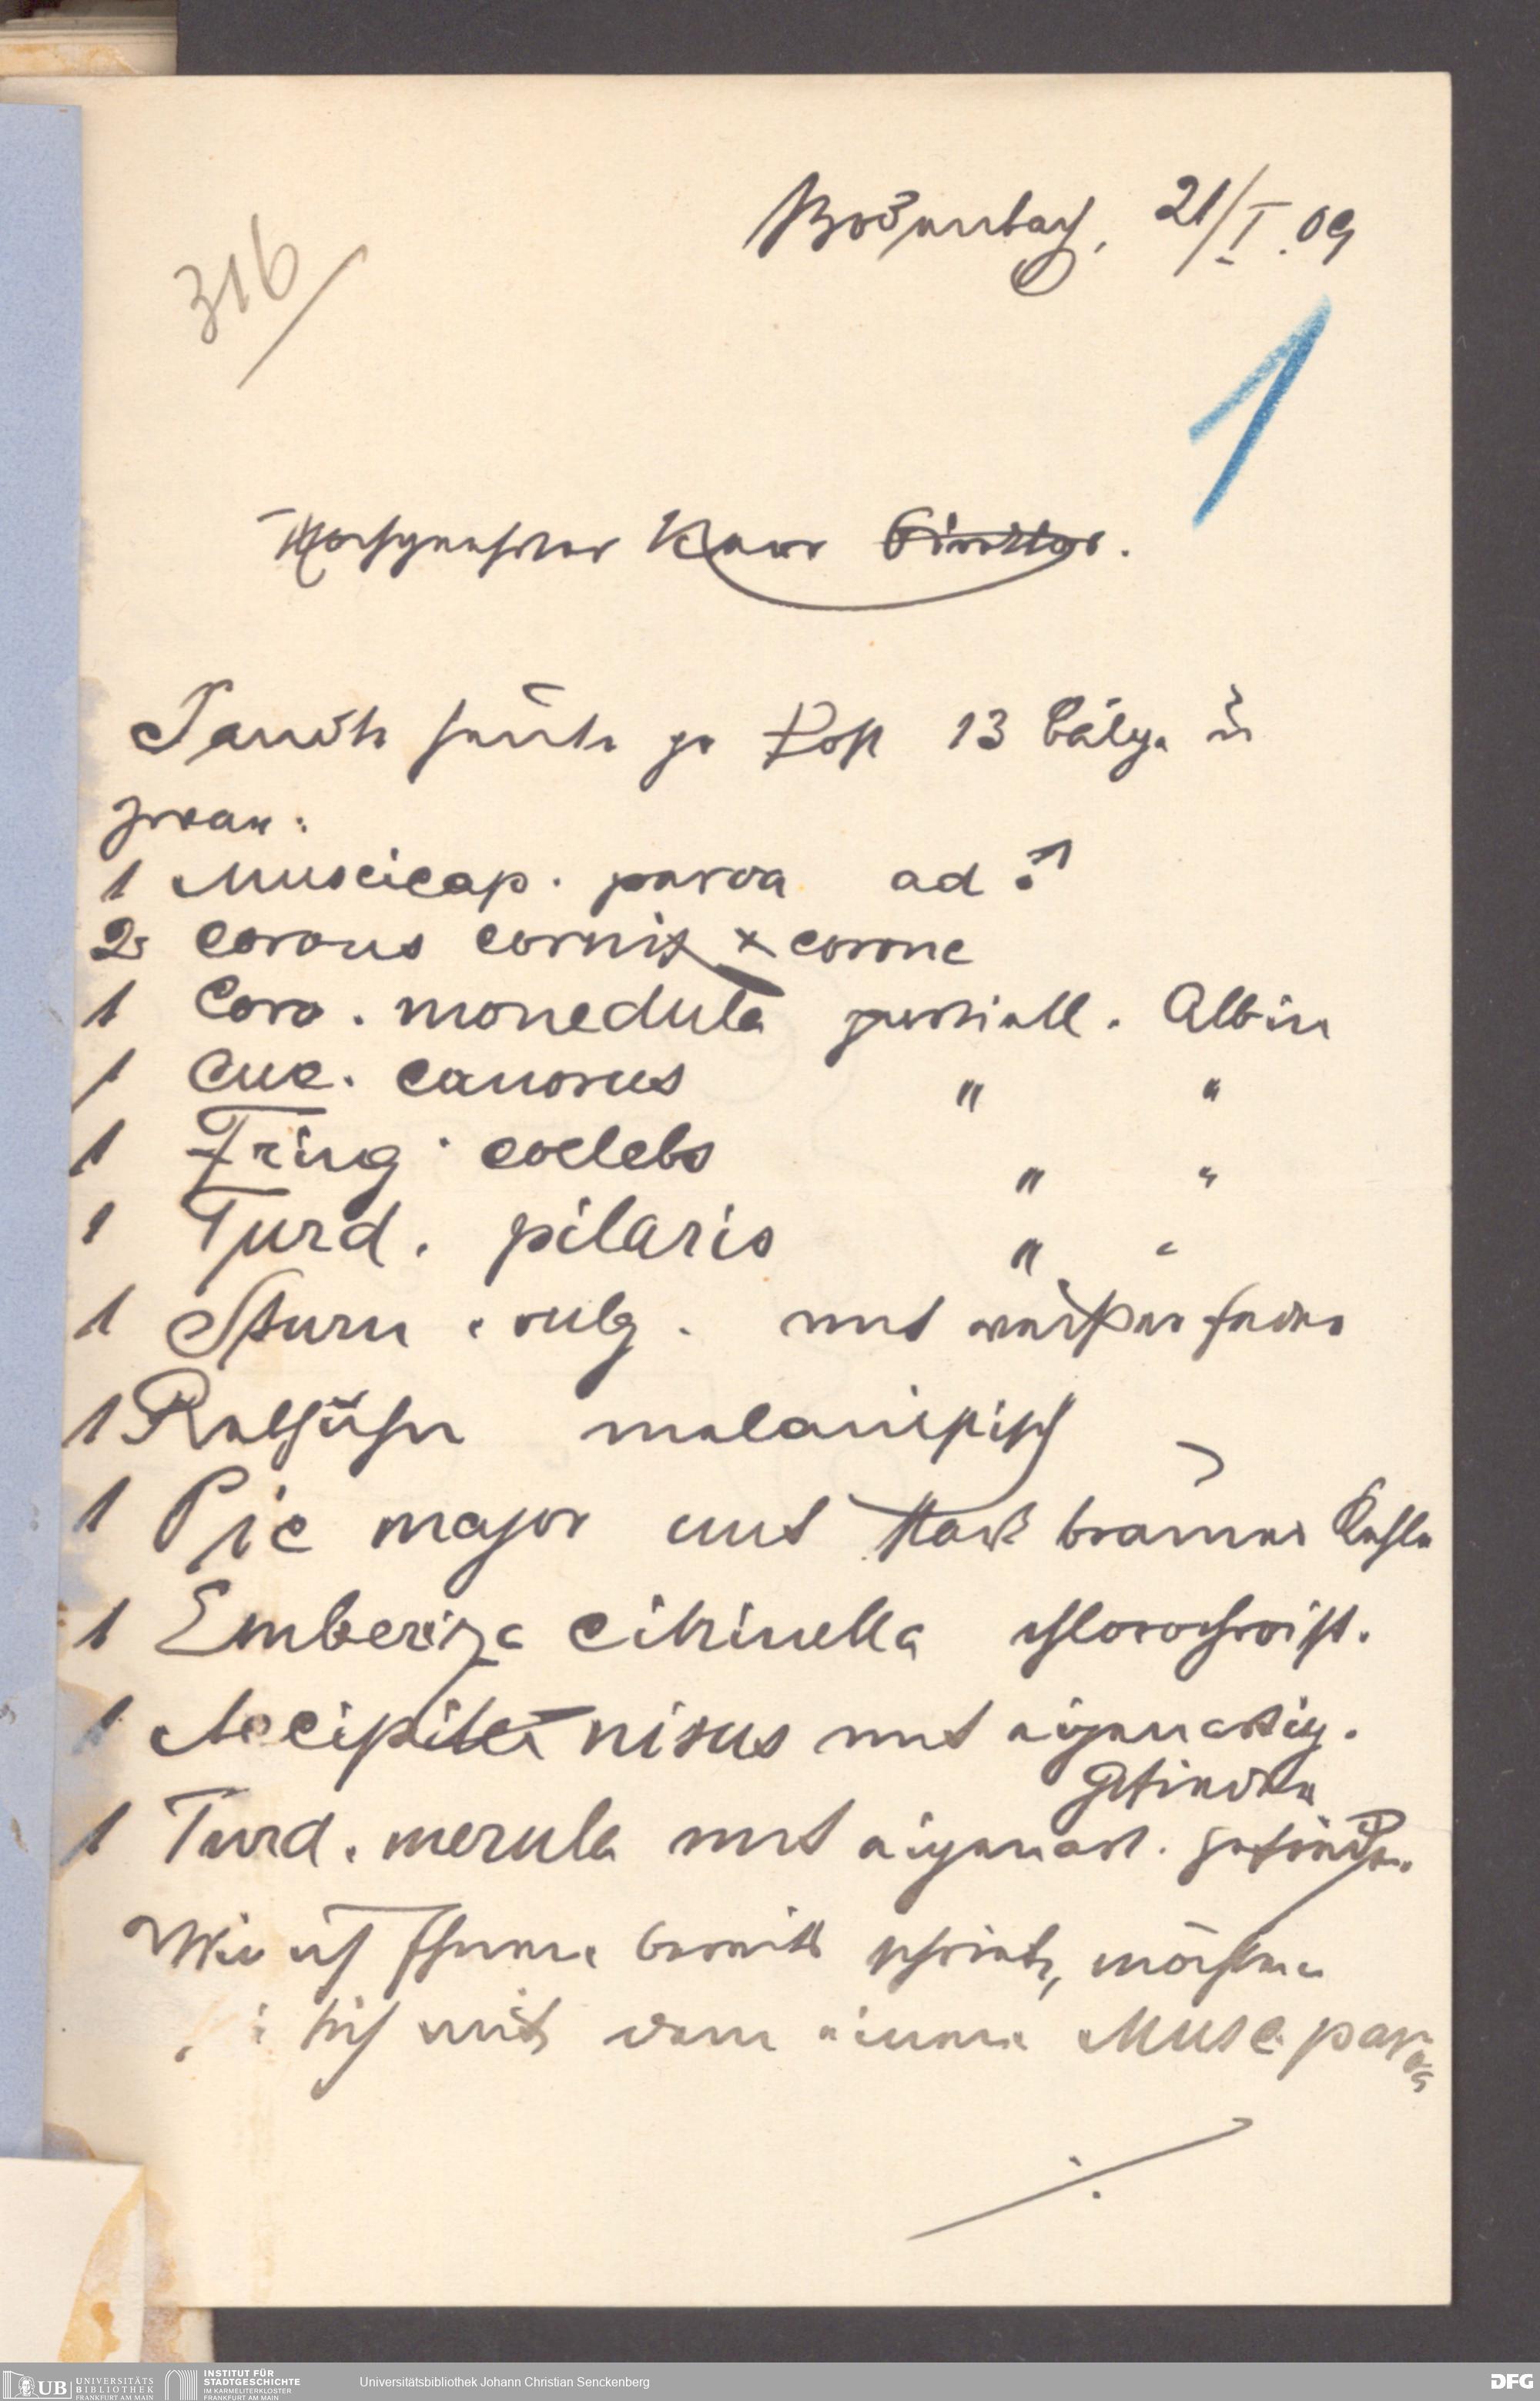 Bodenbach, 21/I.09
316/
1
Hochgeehrter Herr Direktor.
Sandte heute pr Post 13 Bälge u
zwar:
1 Muscicap. parva ad ♂
2 Corvus cornix x corone
1 Corv. monedula partiell. Albin
1 Cuc. canorus " "
1 Fring. coelebs " "
1 Turd. pilaris " "
1 Sturn. vulg. mit weißer Feder
1 Rebhuhn melanistisch
1 Pic major mit stark brauner Kehle
1 Emberiza citrinella chlorochroist.
1 Accipiter nisus mit eigenartig.
Gefieder
1 Turd. merula mit eigenart. Gefieder.
Wie ich Ihnen bereits schrieb, möchten
sich mit dem einen Musc parva
./.
UB UNIVERSITÄTS BIBLIOTHEK FRANKFURT AM MAIN
INSTITUT FÜR STADTGESCHICHTE IM KARMELITERKLOSTER FRANKFURT AM MAIN
Universitätsbibliothek Johann Christian Senckenberg
DFG